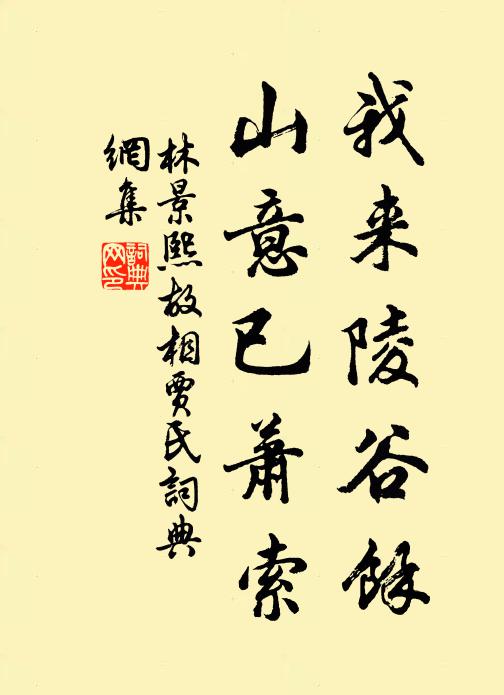 我来陵谷餘
山意已蕭索
林景熙故相賈氏詞典
網集
詞典
网印